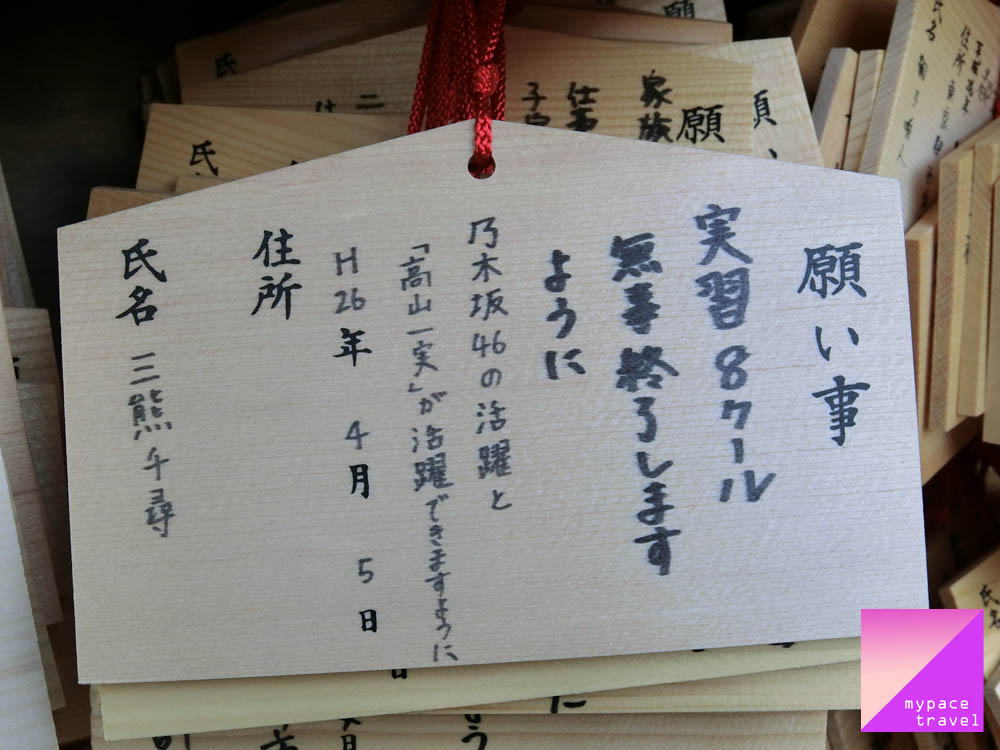 願い事
実習8クール
無事終了します
ように
乃木坂46の活躍と
「高山一実」が活躍できますように
H26年 4月 5日
住所
氏名 三熊千尋
願
家族
仕事
願
氏
氏
二
氏名
住所 東京
氏名
mypace
travel